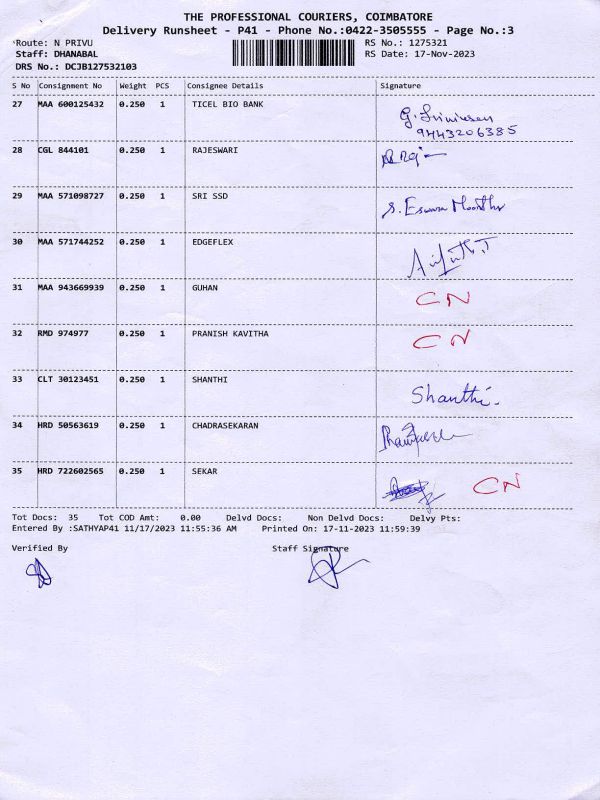 THE PROFESSIONAL COURIERS, COIMBATORE
Delivery Runsheet - P41 - Phone No.:0422-3505555 - Page No.:3
Route: N PRIVU RS No.: 1275321
Staff: DHANABAL RS Date: 17-Nov-2023
DRS No.: DCJB127532103
S No Consignment No Weight PCS Consignee Details Signature
27 MAA 600125432 0.250 1 TICEL BIO BANK
9443206385
28 CGL 844101 0.250 1 RAJESWARI
29 MAA 571098727 0.250 1 SRI SSD
30 MAA 571744252 0.250 1 EDGEFLEX
31 MAA 943669939 0.250 1 GUHAN CN
32 RMD 974977 0.250 1 PRANISH KAVITHA CN
33 CLT 30123451 0.250 1 SHANTHI Shanthi.
34 HRD 50563619 0.250 1 CHADRASEKARAN
35 HRD 722602565 0.250 1 SEKAR CN
Tot Docs: 35 Tot COD Amt: 0.00 Delvd Docs: Non Delvd Docs: Delvy Pts:
Entered By :SATHYAP41 11/17/2023 11:55:36 AM Printed On: 17-11-2023 11:59:39
Verified By Staff Signature